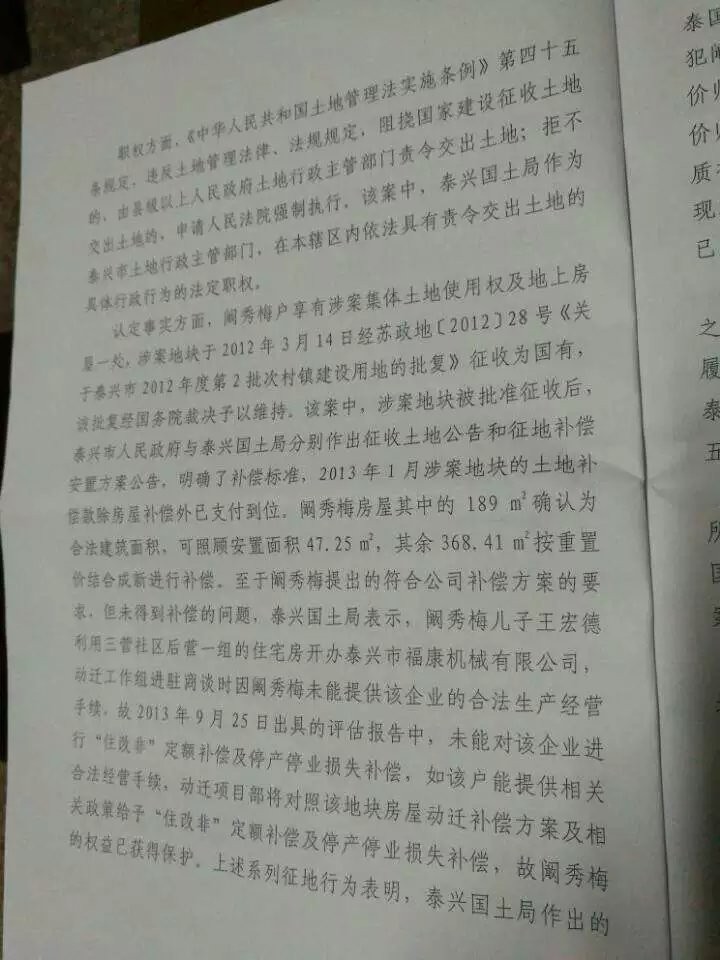 职权方面，《中华人民共和国土地管理法实施条例》第四十五
条规定，违反土地管理法律、法规规定，阻挠国家建设征收土地
的，由县级以上人民政府土地行政主管部门责令交出土地；拒不
交出土地的，申请人民法院强制执行。该案中，泰兴国土局作为
泰兴市土地行政主管部门，在本辖区内依法具有责令交出土地的
具体行政行为的法定职权。
认定事实方面，阚秀梅户享有涉案集体土地使用权及地上房
屋一处，涉案地块于2012年3月14日经苏政地〔2012〕28号《关
于泰兴市2012年度第2批次村镇建设用地的批复》征收为国有，
该批复经国务院裁决予以维持。该案中，涉案地块被批准征收后，
泰兴市人民政府与泰兴国土局分别作出征收土地公告和征地补偿
安置方案公告，明确了补偿标准，2013年1月涉案地块的土地补
偿款除房屋补偿外已支付到位。阚秀梅房屋其中的189㎡确认为
合法建筑面积，可照顾安置面积47.25㎡，其余368.41㎡按重置
价结合成新进行补偿。至于阚秀梅提出的符合公司补偿方案的要
求，但未得到补偿的问题，泰兴国土局表示，阚秀梅儿子王宏德
利用三营社区后营一组的住宅房开办泰兴市福康机械有限公司，
动迁工作组进驻商谈时因阚秀梅未能提供该企业的合法生产经营
手续，故2013年9月25日出具的评估报告中，未能对该企业进
行“住改非”定额补偿及停产停业损失补偿，如该户能提供相关
合法经营手续，动迁项目部将对照该地块房屋动迁补偿方案及相
关政策给予“住改非”定额补偿及停产停业损失补偿，故阚秀梅
的权益已获得保护。上述系列征地行为表明，泰兴国土局作出的
泰国
犯阚
价师
价师
质
现
已
之
履
泰
五
所
国
案